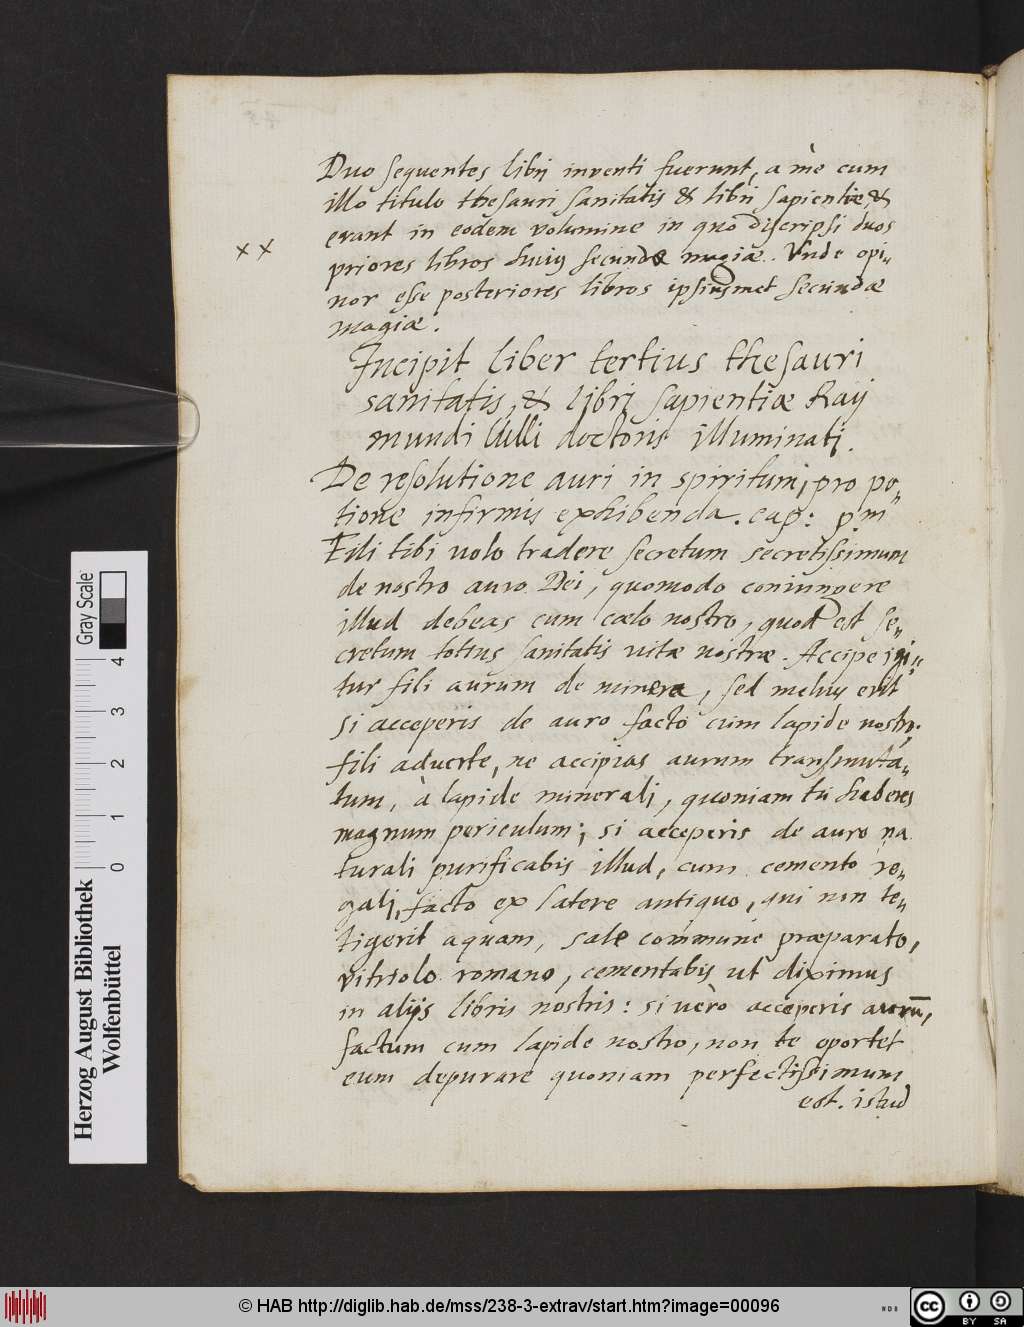 Duo sequentes libri inventi fuerunt, a me cum
illo titulo thesauri sanitatis & libri sapientiæ, &
erant in eodem volumine in quo discripsi duos
xx
priores libros huius secundæ magiæ. Unde opi-
nor esse posteriores libros ipsiusmet secundæ
magiæ.
Incipit liber tertius thesauri
sanitatis, & libri sapientiæ Ray
mundi Lulli doctoris illuminati.
De resolutione auri in spiritum, pro po-
tione infirmis exhibenda. cap: pm
Fili tibi volo tradere secretum secretissimum
de nostro auro Dei, quomodo coniungere
illud debeas cum cælo nostro, quod est se-
cretum totius sanitatis vitæ nostræ. Accipe igi-
tur fili aurum de minera, sed melius erit
si acceperis de auro facto cum lapide nostr.
fili adverte, ne accipias aurum transmuta-
tum, à lapide minerali, quoniam tu haberes
magnum periculum; si acceperis de auro na
turali purificabis illud, cum cemento re-
gali, facto ex latere antiquo, qui non te-
tigerit aquam, sale commune præparato,
vitriolo romano, cementabis ut diximus
in alijs libris nostris: si vèro acceperis aurū,
factum cum lapide nostro, non te oportet
eum depurare quoniam perfectissimum
est. istud
Herzog August Bibliothek
Wolfenbüttel
0 1 2 3 4
Gray Scale
© HAB http://diglib.hab.de/mss/238-3-extrav/start.htm?image=00096
cc BY SA